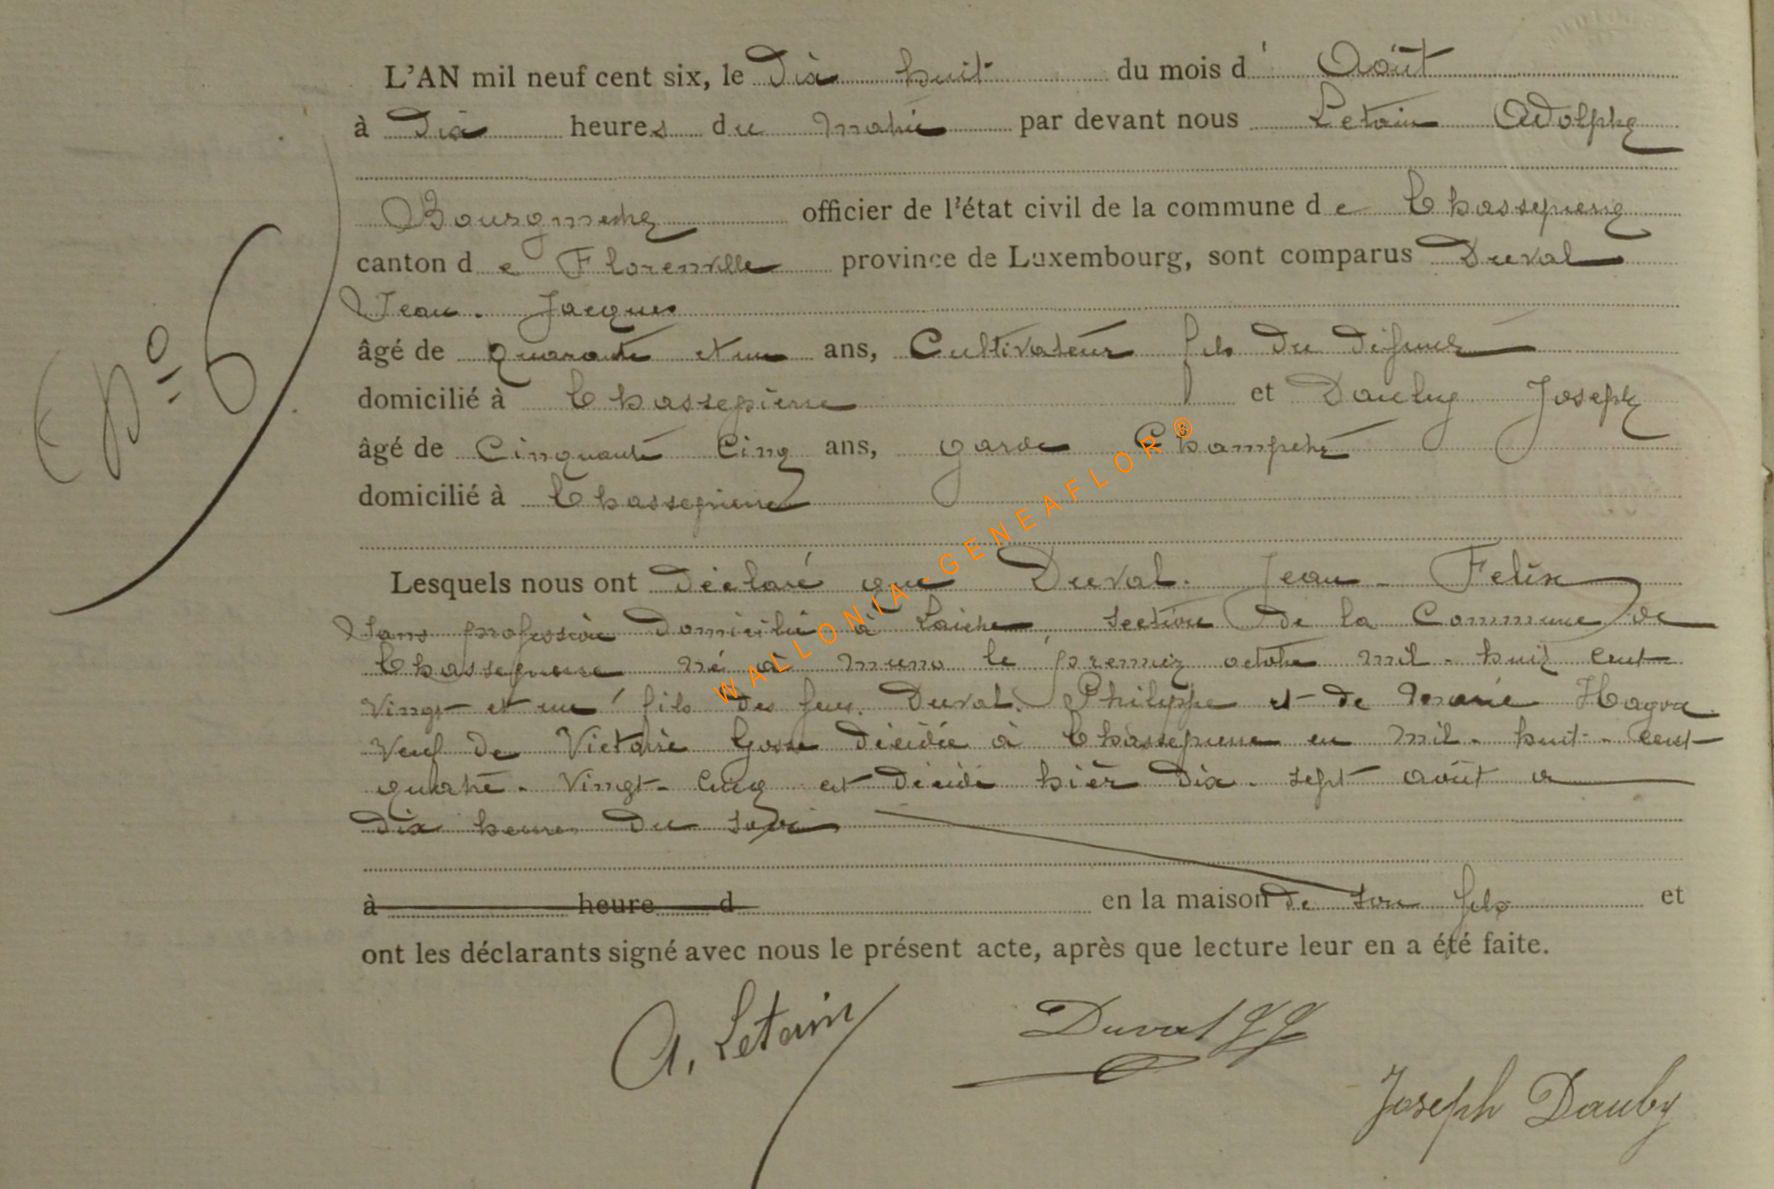 L'AN mil neuf cent six, le Dix huit du mois d' Août
à Dix heures du Matin par devant nous Letain Adolphe
Bourgmestre officier de l'état civil de la commune de Chassepierre
canton de Florenville province de Luxembourg, sont comparus Duval
Jean - Jacques
âgé de quarante et un ans, Cultivateur fils du défunt
domicilié à Chassepierre et Dauby Joseph
âgé de Cinquante Cinq ans, garde Champêtre
domicilié à Chassepierre
N° 6
Lesquels nous ont déclaré que Duval. Jean - Felix
Sans profession domicilié à Laiche section de la Commune de
Chassepierre né à Muno le premier octobre mil - huit cent
vingt et un fils des feus Duval. Philippe et de Marie
veuf de Victoire Gosse décédée à Chassepierre en mil - huit - cent
quatre - vingt - cinq est décédé hier dix - sept août à
dix heures du soir
à heure d en la maison de son fils et
ont les déclarants signé avec nous le présent acte, après que lecture leur en a été faite.
A. Letain
Duval JJ
Joseph Dauby
WALLONIA-GENEAFLOR®